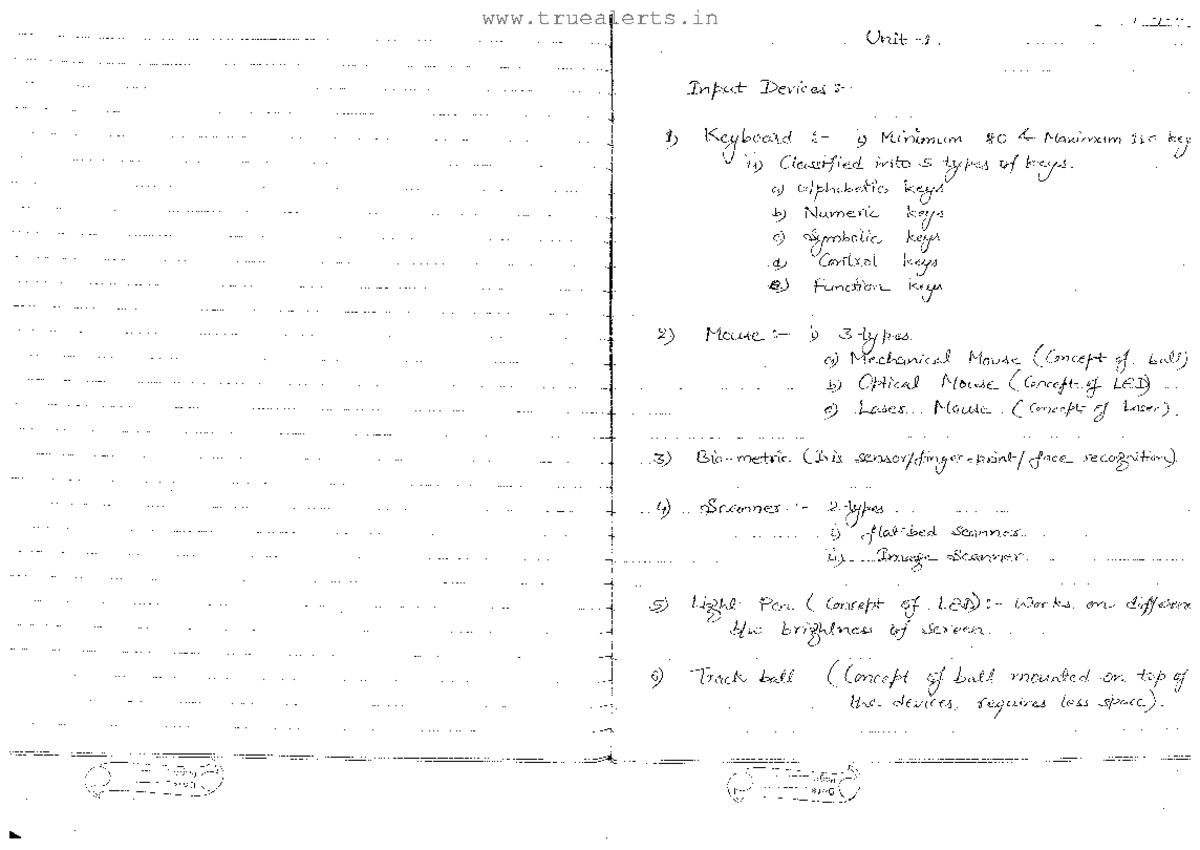 www.truealerts.in
Unit -1.
Input Devices :-
1) Keyboard :- i) Minimum 80 & Maximum 110 key
ii) Classified into 5 types of keys.
a) Alphabetic keys
b) Numeric keys
c) Symbolic keys
d) Control keys
e) Function keys
2) Mouse :- i) 3-types.
a) Mechanical Mouse (Concept of ball)
b) Optical Mouse (Concept of LED)
c) Laser Mouse (Concept of Laser).
3) Bio-metric (Iris sensor/finger-print/face recognition)
4) Scanner :- 2-types
i) flat-bed Scanner.
ii) Image Scanner.
5) Light Pen (Concept of LED) :- Works on differen
the brightness of screen.
6) Track ball (Concept of ball mounted on top of
the devices, requires less space).